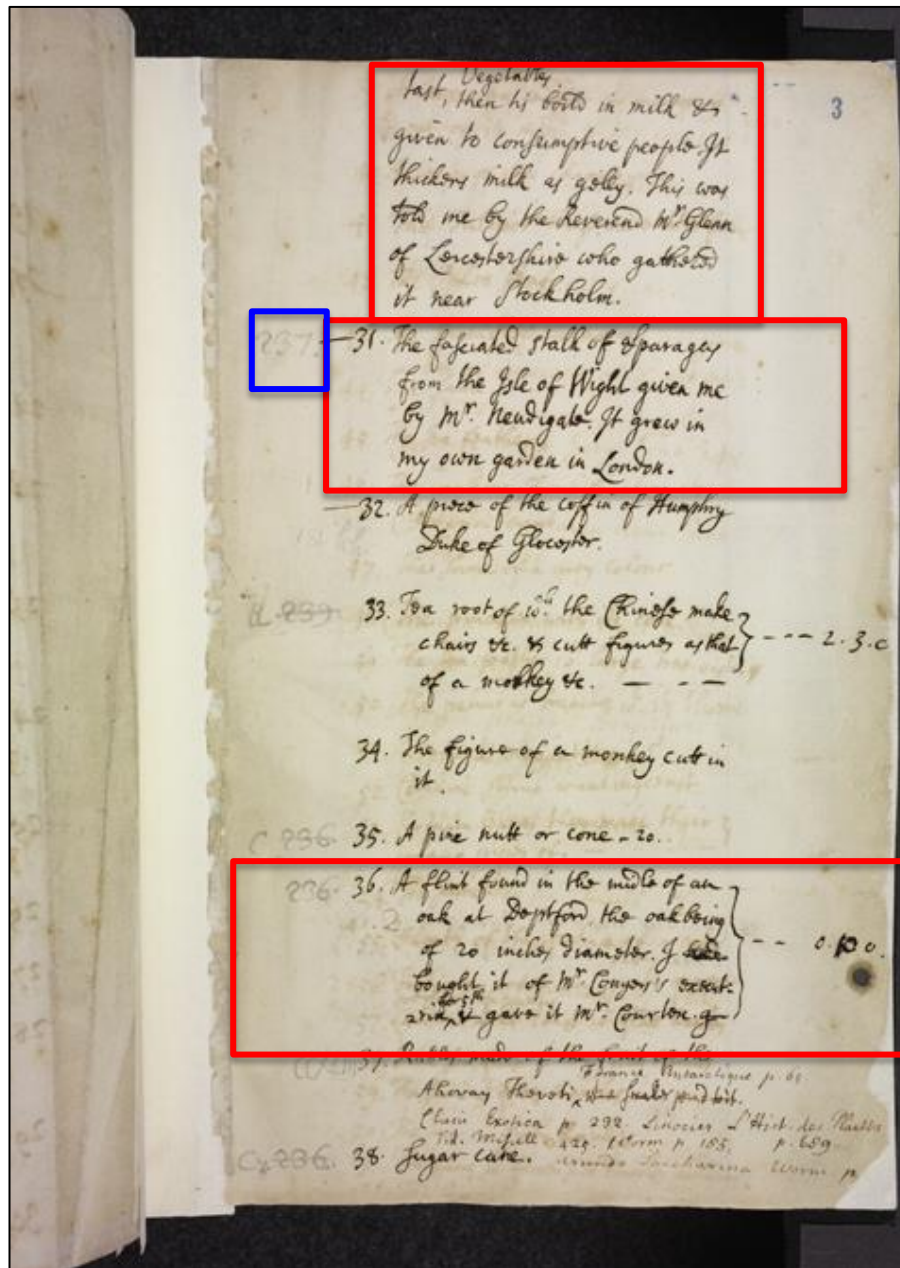 Vegetables.
3
last, then tis boild in milk &
given to consumptive people. It
thickens milk as gelly. This was
told me by the Reverend Mr. Glenn
of Leicestershire who gathered
it near Stockholm.
237. 31. The fasciated stalk of Asparagus
from the Isle of Wight given me
by Mr. Neudigate. It grew in
my own garden in London.
32. A piece of the coffin of Humphry
Duke of Glocester.
239. 33. Tea root of wch. the Chinese make
chairs &c. & cutt figures as that --- 2.3.0
of a monkey &c. — - —
34. The figure of a monkey cutt in
it.
C 236. 35. A pine nutt or cone - 20.
236. 36. A flint found in the midle of an
oak at Deptford, the oak being
of 20 inches diameter. I -- 0. 0.
bought it of Mr. Conyers's execu-
& gave it Mr. Courten.
37. made of the fruit of the
France Antarctique p. 61
Ahovay Theveti,
Clusii Exotica p 292. Linocier L'Hist. des Plantes
Worm p 185, p. 689
236. 38. Sugar cane. arundo Saccharina Worm p